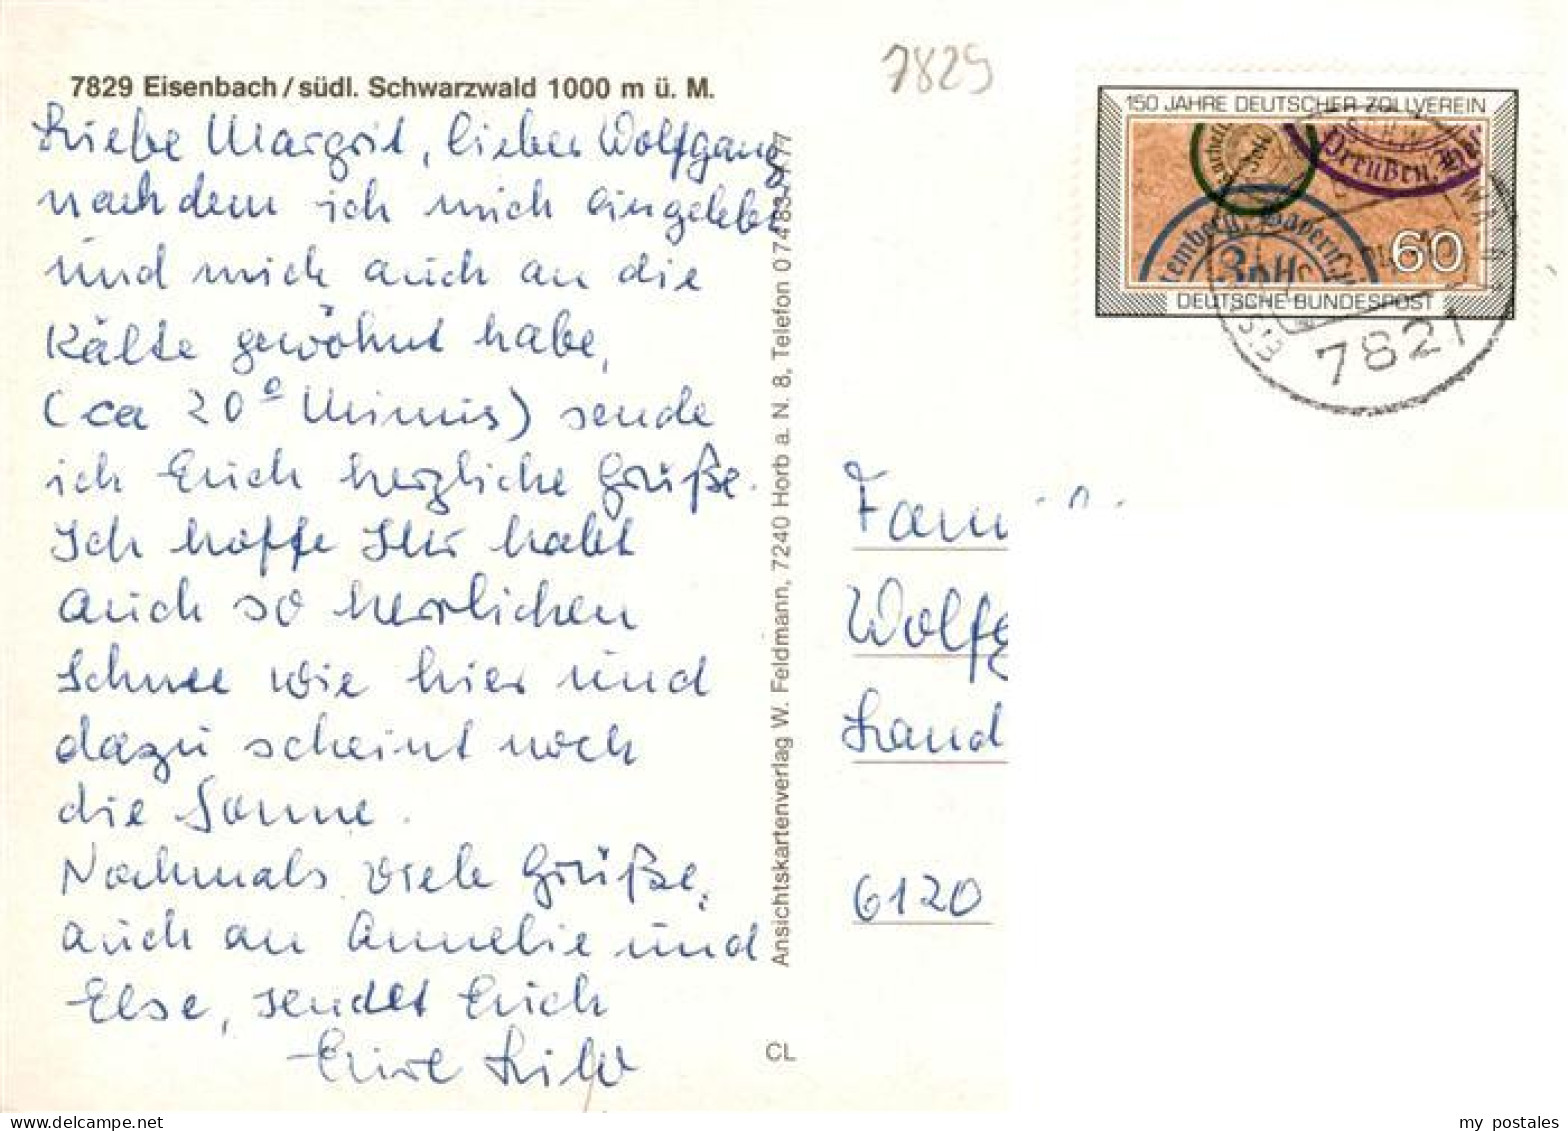 7829 Eisenbach / südl. Schwarzwald 1000 m ü. M.
Liebe Margrit, lieber Wolfgang
nachdem ich mich eingelebt
und mich auch an die
Kälte gewöhnt habe,
(ca 20° Minus) sende
ich Euch herzliche Grüße.
Ich hoffe Ihr habt
auch so herrlichen
Schnee wie hier und
dazu scheint noch
die Sonne.
Nochmals viele Grüße,
auch an Annelie und
Else, sendet Euch
Eure
Ansichtskartenverlag W. Feldmann, 7240 Horb a. N. 8, Telefon 0 74 83
CL
7829
150 JAHRE DEUTSCHER ZOLLVEREIN
Preußen,
Bayern
60
DEUTSCHE BUNDESPOST
7821
Fami
Wolfg
Land
6120
my postales
www.delcampe.net